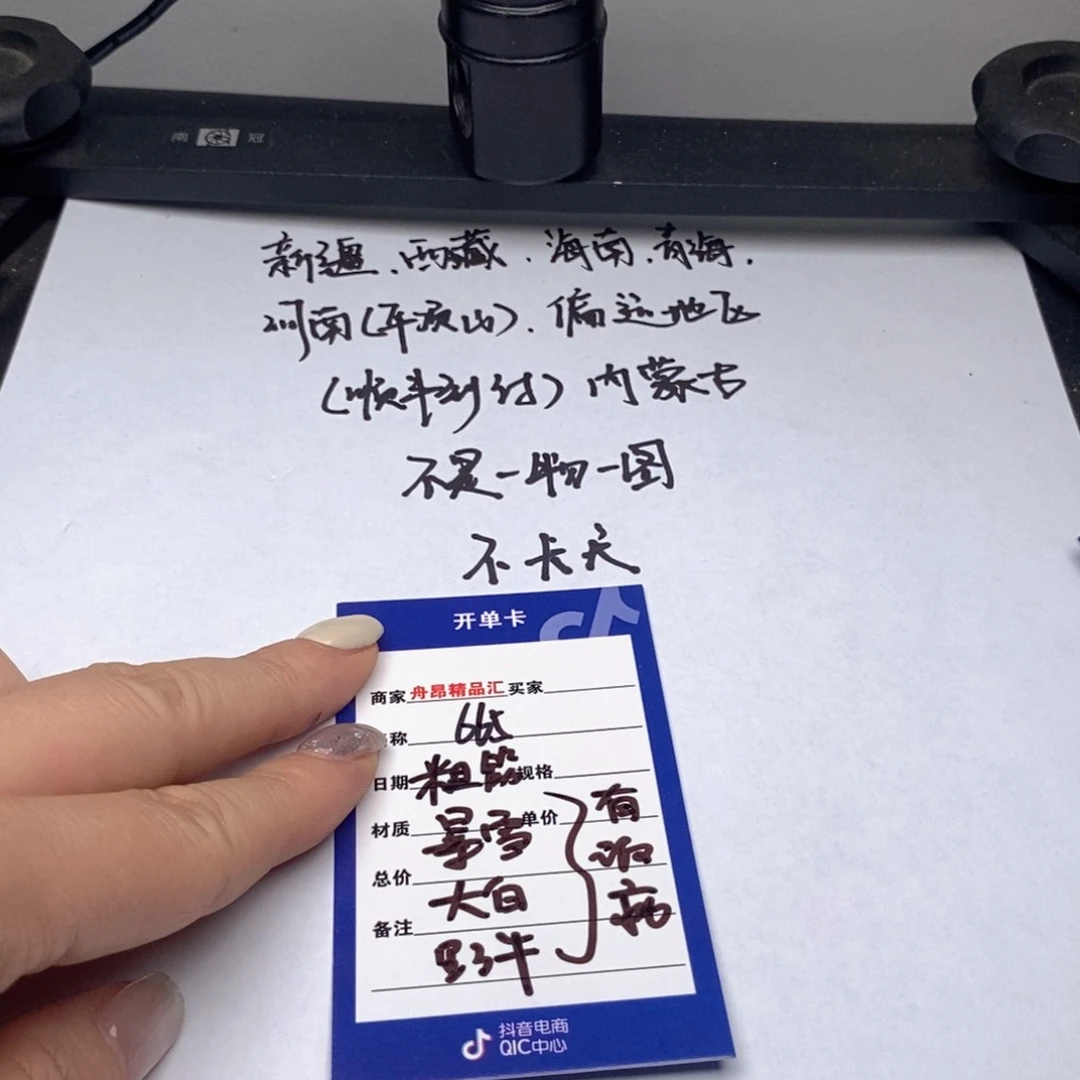 南 冠
新疆、西藏、海南、青海、
河南(平顶山)、偏远地区
(顺丰到付)内蒙古
不是一物一图
不卡天
开单卡
商家 舟昂精品汇 买家
称 665
日期 粗 规格
材质 暴雪 单价
总价 大白
备注 野牛
有
抖音电商
QIC中心